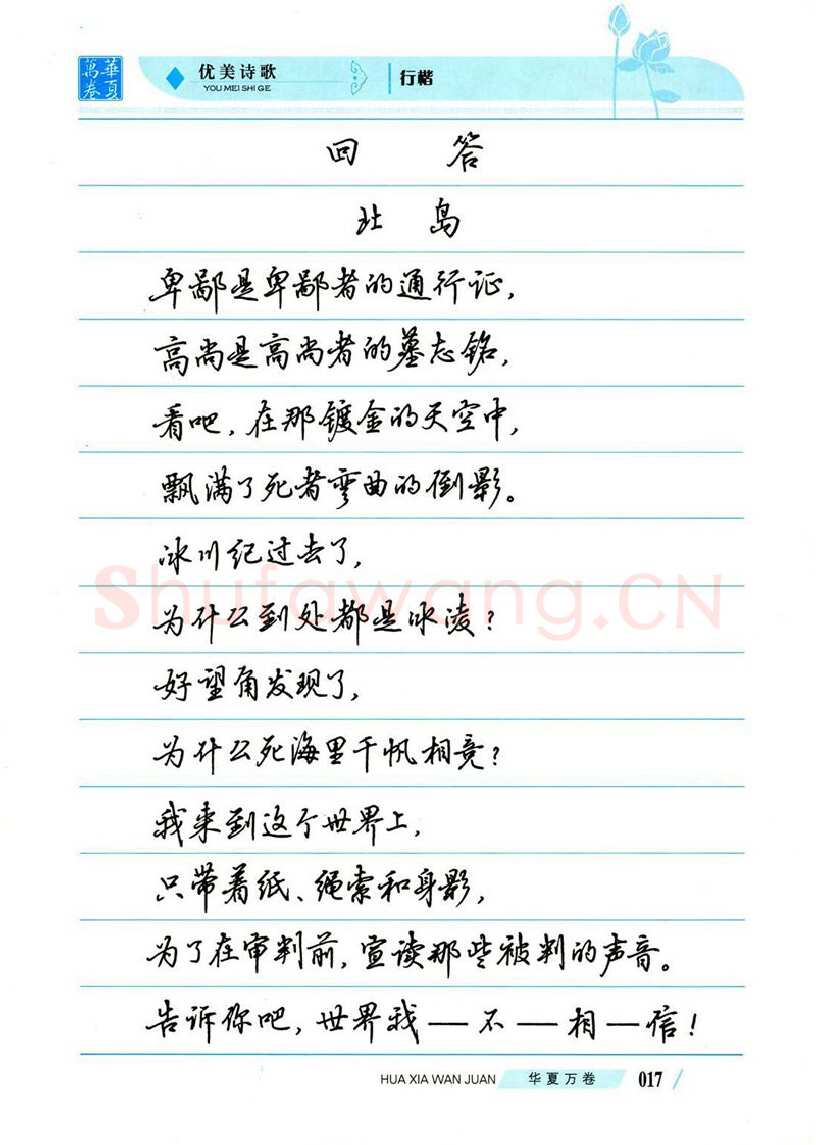 華夏萬卷
优美诗歌 行楷
YOU MEI SHI GE
回 答
北 岛
卑鄙是卑鄙者的通行证，
高尚是高尚者的墓志铭，
看吧，在那镀金的天空中，
飘满了死者弯曲的倒影。
冰川纪过去了，
为什么到处都是冰凌？
好望角发现了，
为什么死海里千帆相竞？
我来到这个世界上，
只带着纸、绳索和身影，
为了在审判前，宣读那些被判的声音。
告诉你吧，世界我—不—相—信！
Shufawang.CN
HUA XIA WAN JUAN 华夏万卷 017